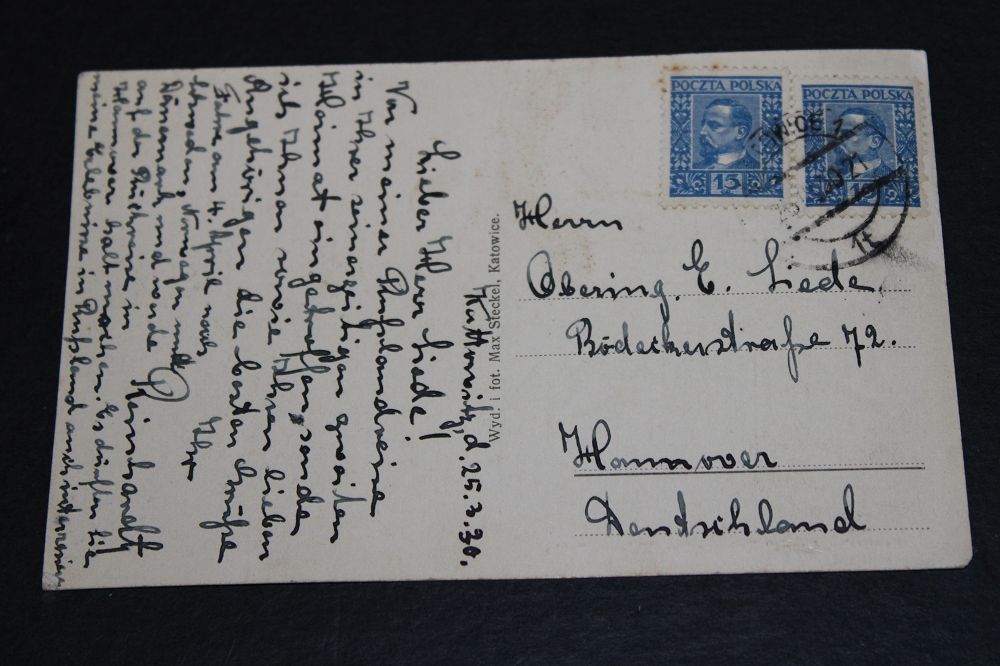 Kattowitz, d. 25.3.30.
Lieber Herr Liede!
Von meiner Rußlandreise
in Ihrer seinerzeitigen zweiten
Heimat eingetroffen, sende
ich Ihnen sowie Ihren lieben
Angehörigen die besten Grüße
Ihr
Reinhardt
Fahre am 4. April nach
Schweden, Norwegen und
Dänemark und werde
auf der Rückreise in
Hannover halt machen. Es dürften Sie
meine Erlebnisse in Rußland auch interessieren
Wyd. i fot. Max Steckel, Katowice.
POCZTA POLSKA
15
POCZTA POLSKA
15
21
1t
Herrn
Obering. E. Liede.
Bödekerstraße 72.
Hannover
Deutschland